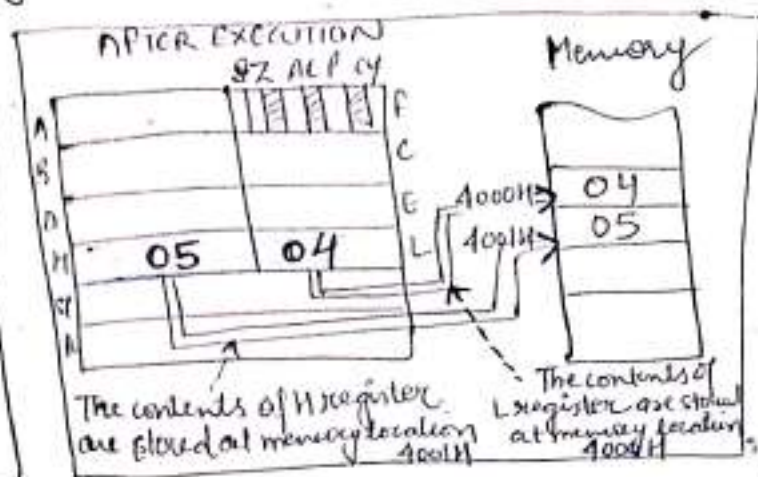 AFTER EXECUTION
SZ AC P CY
Memory
A
F
B
C
D
E
4000H
04
H
05
04
L
4001H
05
SP
The contents of H register
are stored at memory location
4001H
The contents of
L register are stored
at memory location
4000H